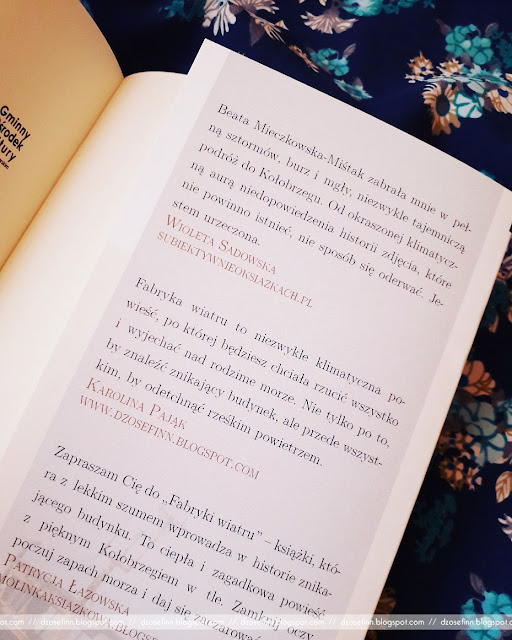 Gminny
Ośrodek
Kultury
Beata Mieczkowska-Miśtak zabrała mnie w peł-
ną sztormów, burz i mgły, niezwykle tajemniczą
podróż do Kołobrzegu. Od okraszonej klimatycz-
ną aurą niedopowiedzenia historii zdjęcia, które
nie powinno istnieć, nie sposób się oderwać. Je-
stem urzeczona.
Wioleta Sadowska
subiektywnieoksiazkach.pl
Fabryka wiatru to niezwykle klimatyczna po-
wieść, po której będziesz chciała rzucić wszystko
i wyjechać nad rodzime morze. Nie tylko po to,
by znaleźć znikający budynek, ale przede wszyst-
kim, by odetchnąć rześkim powietrzem.
Karolina Pająk
www.dzosefinn.blogspot.com
Zapraszam Cię do „Fabryki wiatru” – książki, któ-
ra z lekkim szumem wprowadza w historie znika-
jącego budynku. To ciepła i zagadkowa powieść
z pięknym Kołobrzegiem w tle. Zamknij oczy,
poczuj zapach morza i daj się zaczarować
Patrycja Łazowska
molinkaksiazkowa.blogspot
dzosefinn.blogspot.com // dzosefinn.blogspot.com // dzosefinn.blogspot.com // dzosefinn.blogspot.com